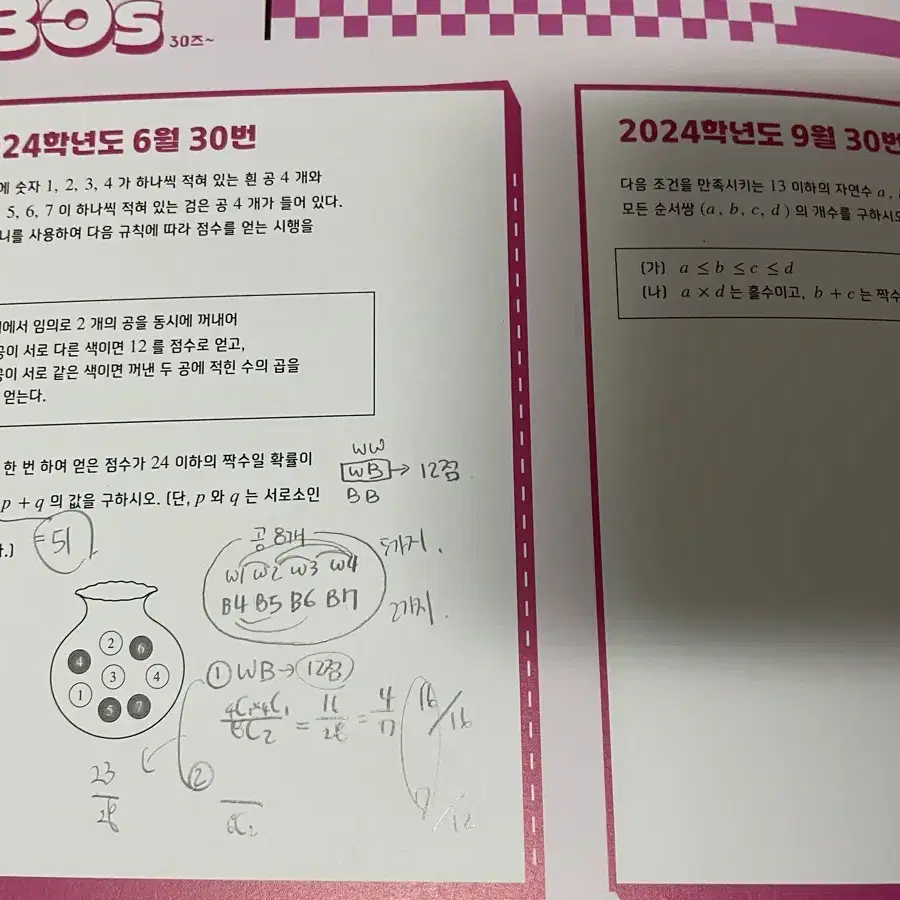 30s 30즈~
24학년도 6월 30번
에 숫자 1, 2, 3, 4 가 하나씩 적혀 있는 흰 공 4 개와
5, 6, 7 이 하나씩 적혀 있는 검은 공 4 개가 들어 있다.
니를 사용하여 다음 규칙에 따라 점수를 얻는 시행을
에서 임의로 2 개의 공을 동시에 꺼내어
공이 서로 다른 색이면 12 를 점수로 얻고,
공이 서로 같은 색이면 꺼낸 두 공에 적힌 수의 곱을
얻는다.
한 번 하여 얻은 점수가 24 이하의 짝수일 확률이
p + q 의 값을 구하시오. (단, p 와 q 는 서로소인
.)
= 51
WW
WB → 12점
BB
공 8개
W1 W2 W3 W4
5가지.
B4 B5 B6 B7
2가지.
2 6
4 3 4
1 5 7
① WB → 12점
4C1×4C1 / 8C2 = 16/28 = 4/7
16/16
②
23/28
8C2
7/12
2024학년도 9월 30번
다음 조건을 만족시키는 13 이하의 자연수 a,
모든 순서쌍 (a, b, c, d) 의 개수를 구하시오
(가) a ≤ b ≤ c ≤ d
(나) a × d 는 홀수이고, b + c 는 짝수